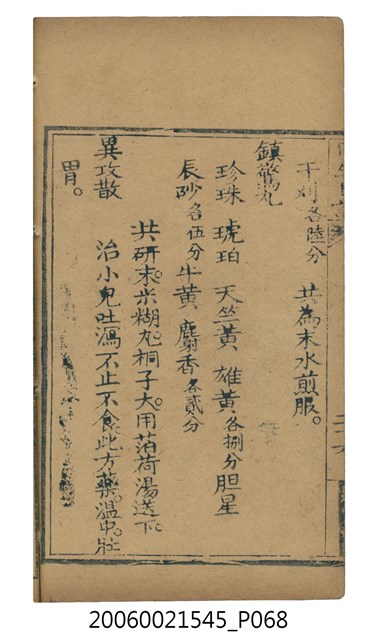 平刈各陸分 共為末水煎服。
鎮驚丸
珍珠 琥珀 天竺黃 雄黃各捌分 胆星
辰砂各伍分 牛黃 麝香各貳分
共研末。米糊丸。桐子大。用萡荷湯送下。
異攻散 治小兒吐瀉不止不食。此方藥。溫中。壯
胃。
20060021545_P068